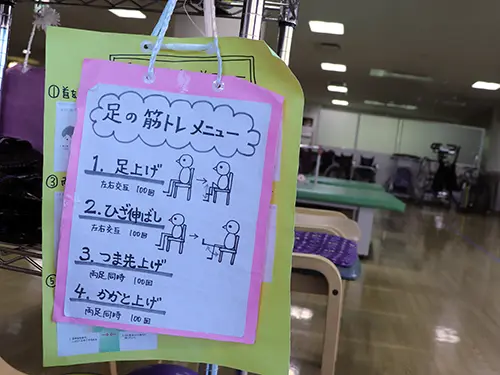 足の筋トレメニュー
1. 足上げ
左右交互 100回
2. ひざ伸ばし
左右交互 100回
3. つま先上げ
両足同時 100回
4. かかと上げ
両足同時 100回
①
③